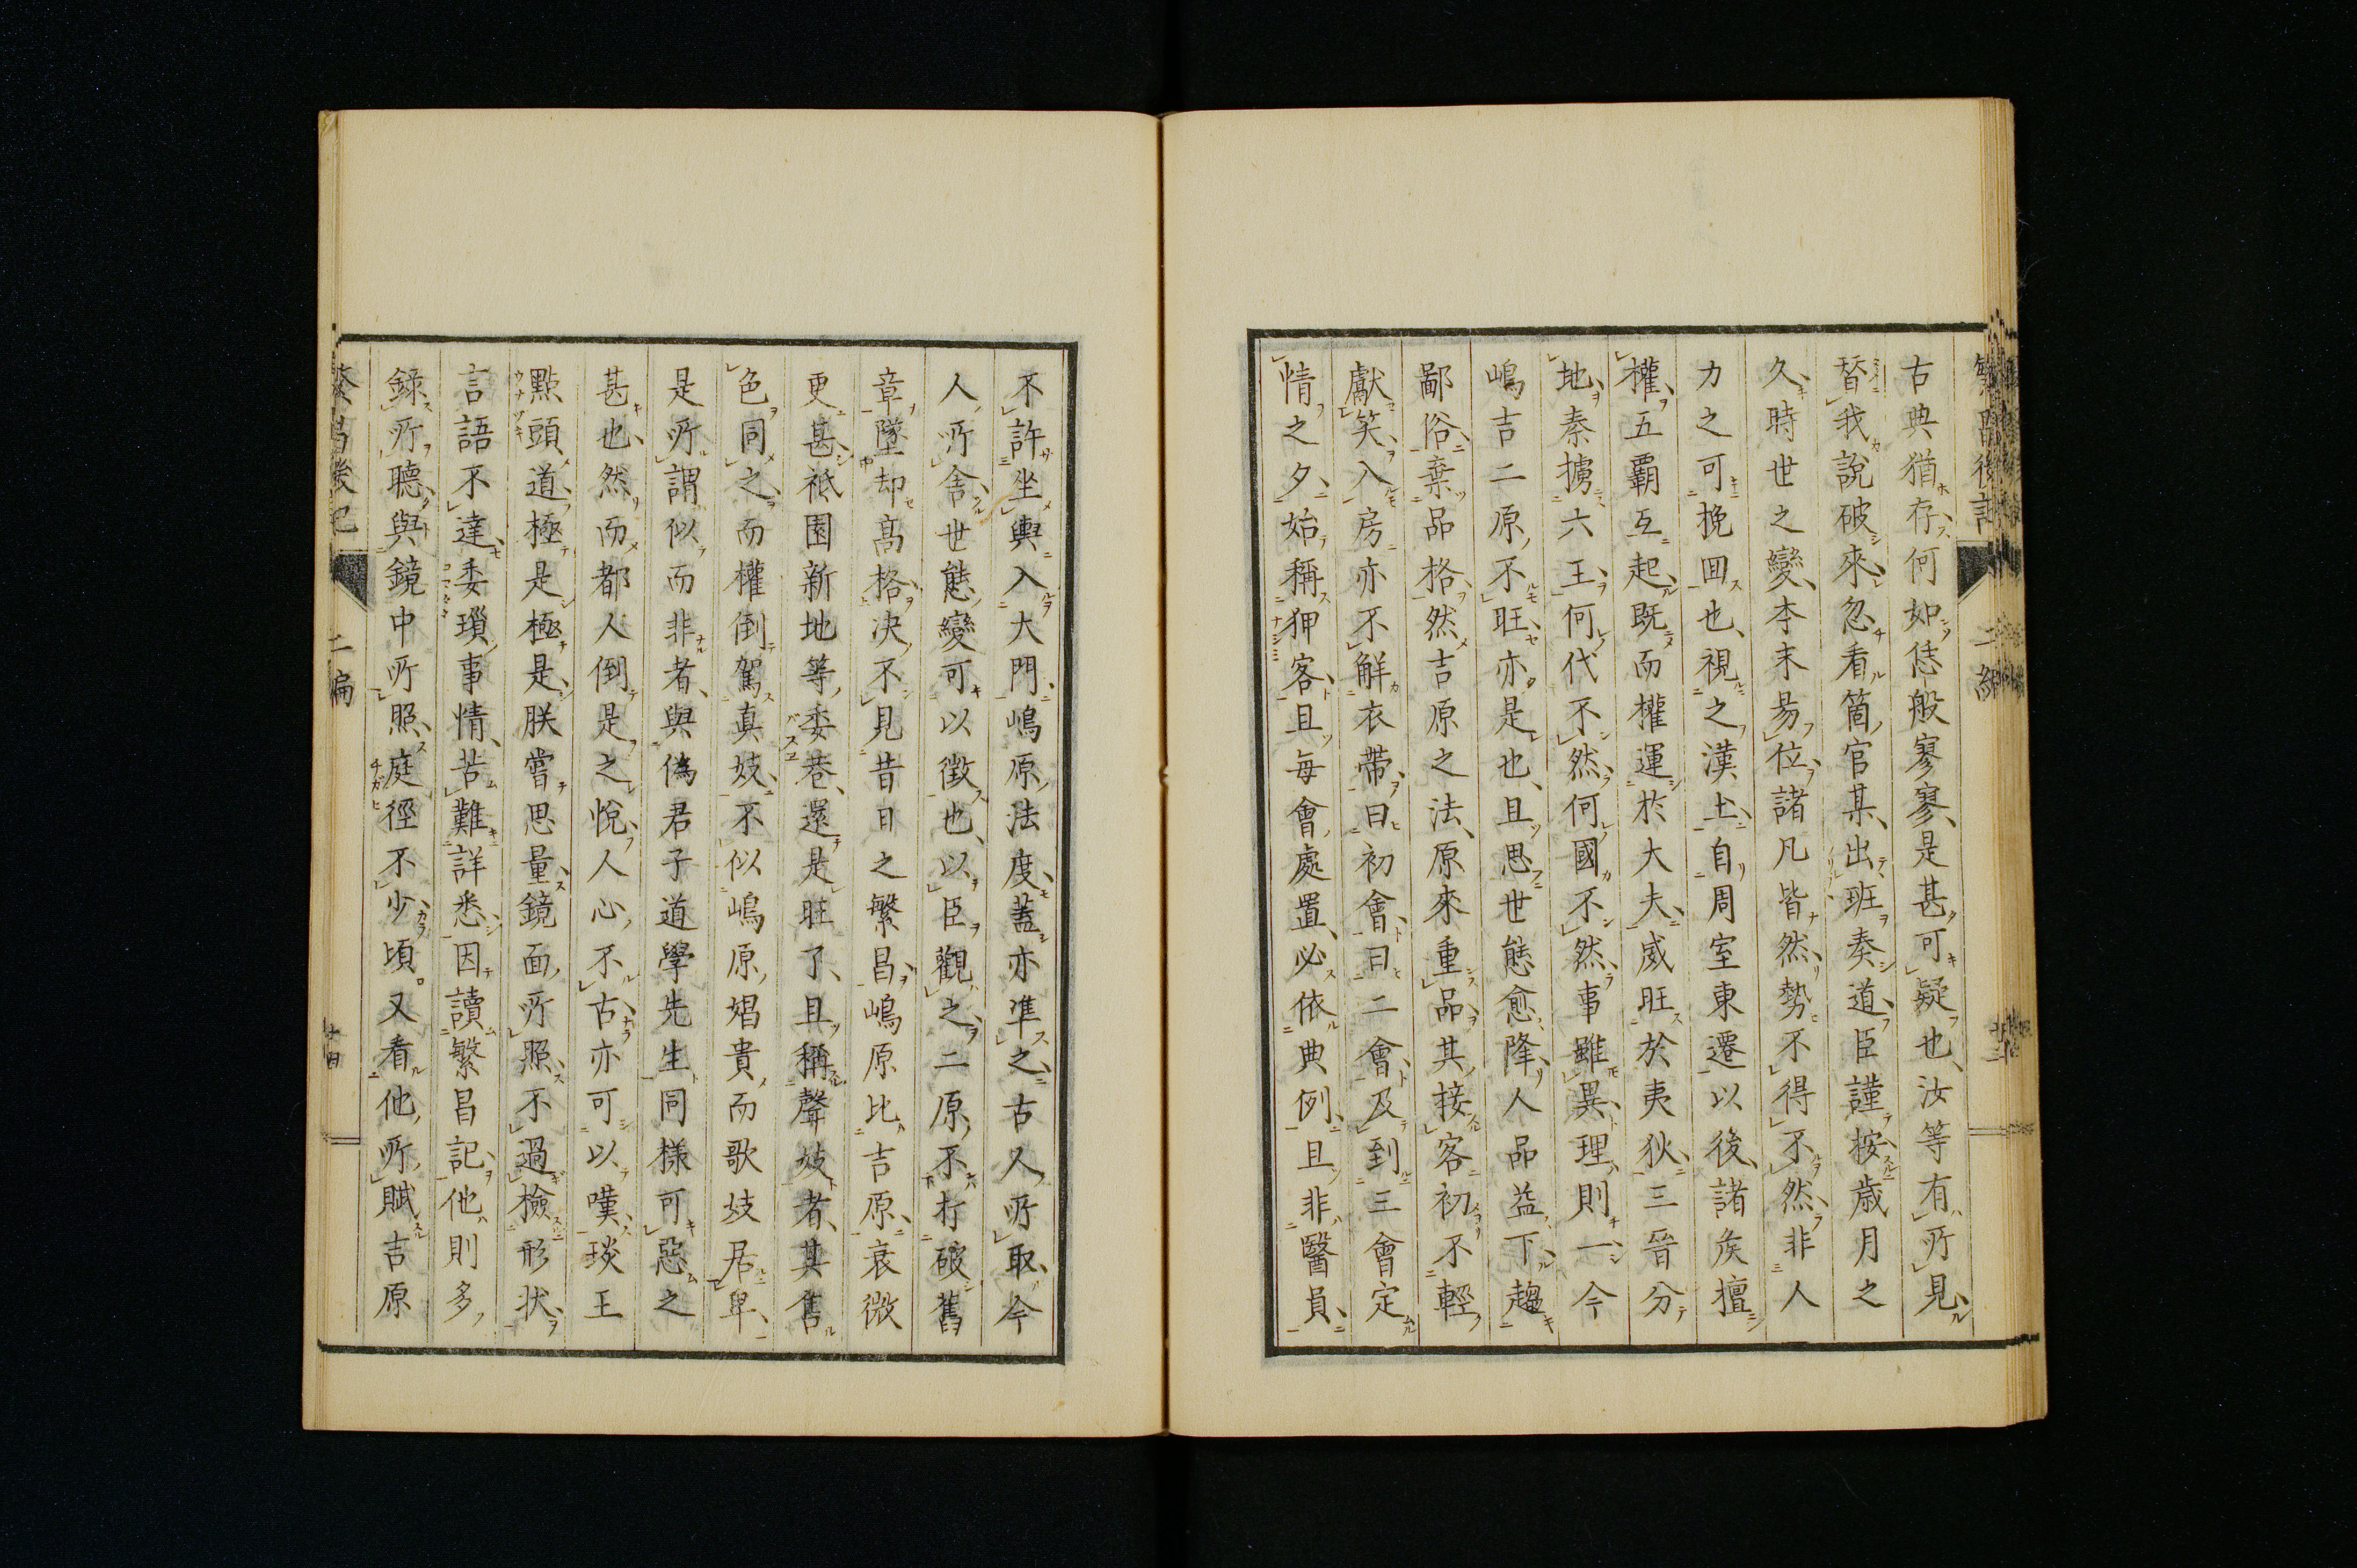 古典猶存何如恁般寥寥是甚可疑也汝等有所見
替我說破來忽看箇官某出班奏道臣謹按歲月之
久時世之變本末易位諸凡皆然勢不得不然非人
力之可挽回也視之漢土自周室東遷以後諸矦擅
權五覇互起既而權運於大夫威旺於夷狄三晉分
地秦擄六王何代不然何國不然事雖異理則一今
嶋吉二原不旺亦是也且思世態愈降人品益下趨
鄙俗棄品格然吉原之法原來重品其接客初不輕
獻笑入房亦不解衣帶曰初會曰二會及到三會定
情之夕始稱狎客且每會處置必依典例且非醫員
不許坐輿入大門嶋原法度蓋亦準之古人所取今
人所舍世態變可以徵也以臣觀之二原不打破舊
章墜却高格决不見昔日之繁昌嶋原比吉原衰微
更甚祗園新地等委巷還是旺了且稱聲妓者其售
色同之而權倒駕真妓不似嶋原娼貴而歌妓居卑
是所謂似而非者與偽君子道學先生同樣可惡之
甚也然而都人倒是之悅人心不古亦可以嘆琰王
點頭道極是極是朕嘗思量鏡面所照不過檢形状
言語不達委瑣事情苦難詳悉因讀繁昌記他則多
錄所聽與鏡中所照庭徑不少頃。又看他所賦吉原
繁昌後記
二編